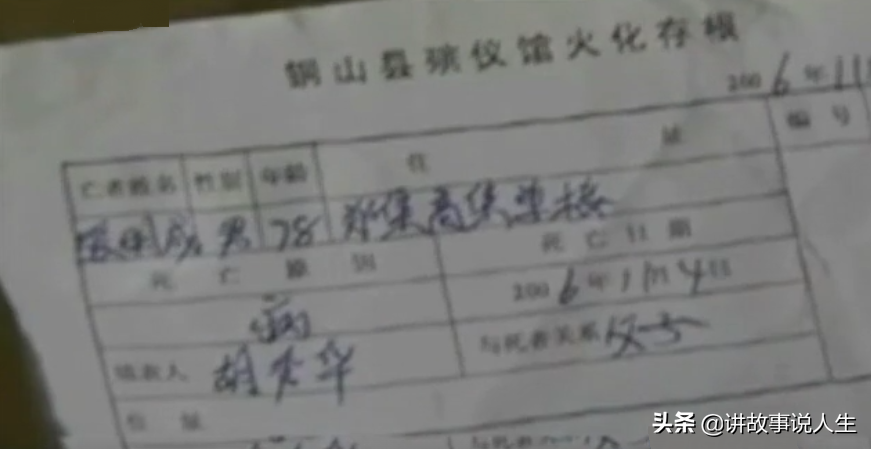 铜山县殡仪馆火化存根
2006年11
亡者姓名 性别 年龄 住 址 编 号
男 78 郑集高集学校
死 亡 原 因 死 亡 日 期
病 2006年1月4日
填表人 胡 华 与死者关系 父子
住 址
头条 @讲故事说人生